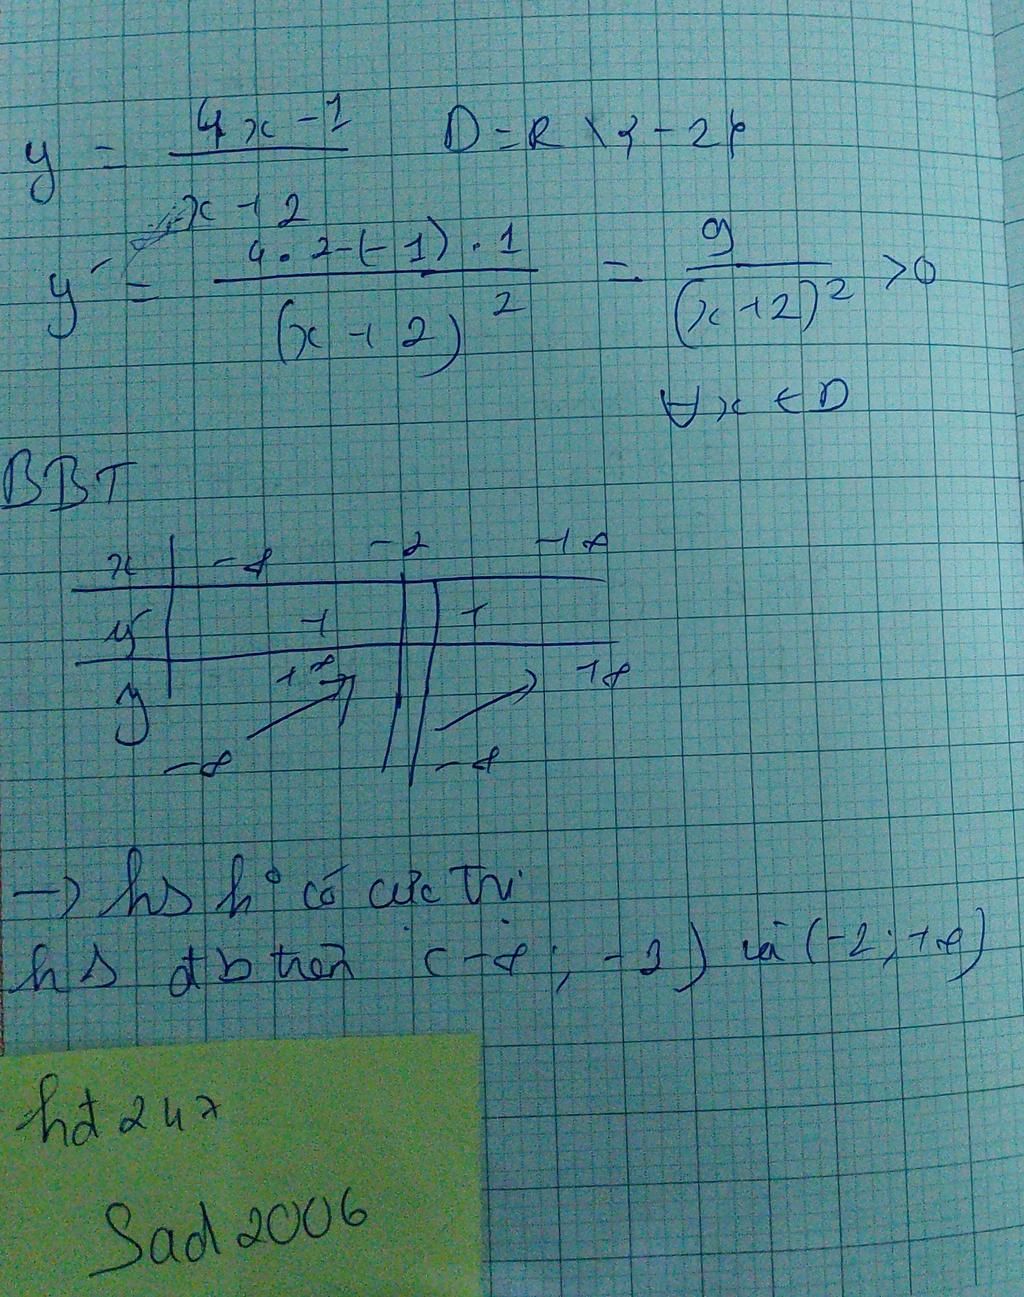 y = (4x - 1)/(x + 2) D = R \ {-2}
y' = (4 . 2 - (-1) . 1)/(x + 2)² = 9/(x + 2)² > 0
∀x ∈ D
BBT
x -∞ -2 +∞
y' + +
y +∞ +∞
-∞ -∞
→ hs ko có cực trị
hs đb trên (-∞; -2) và (-2; +∞)
hđ 247
Sad2006